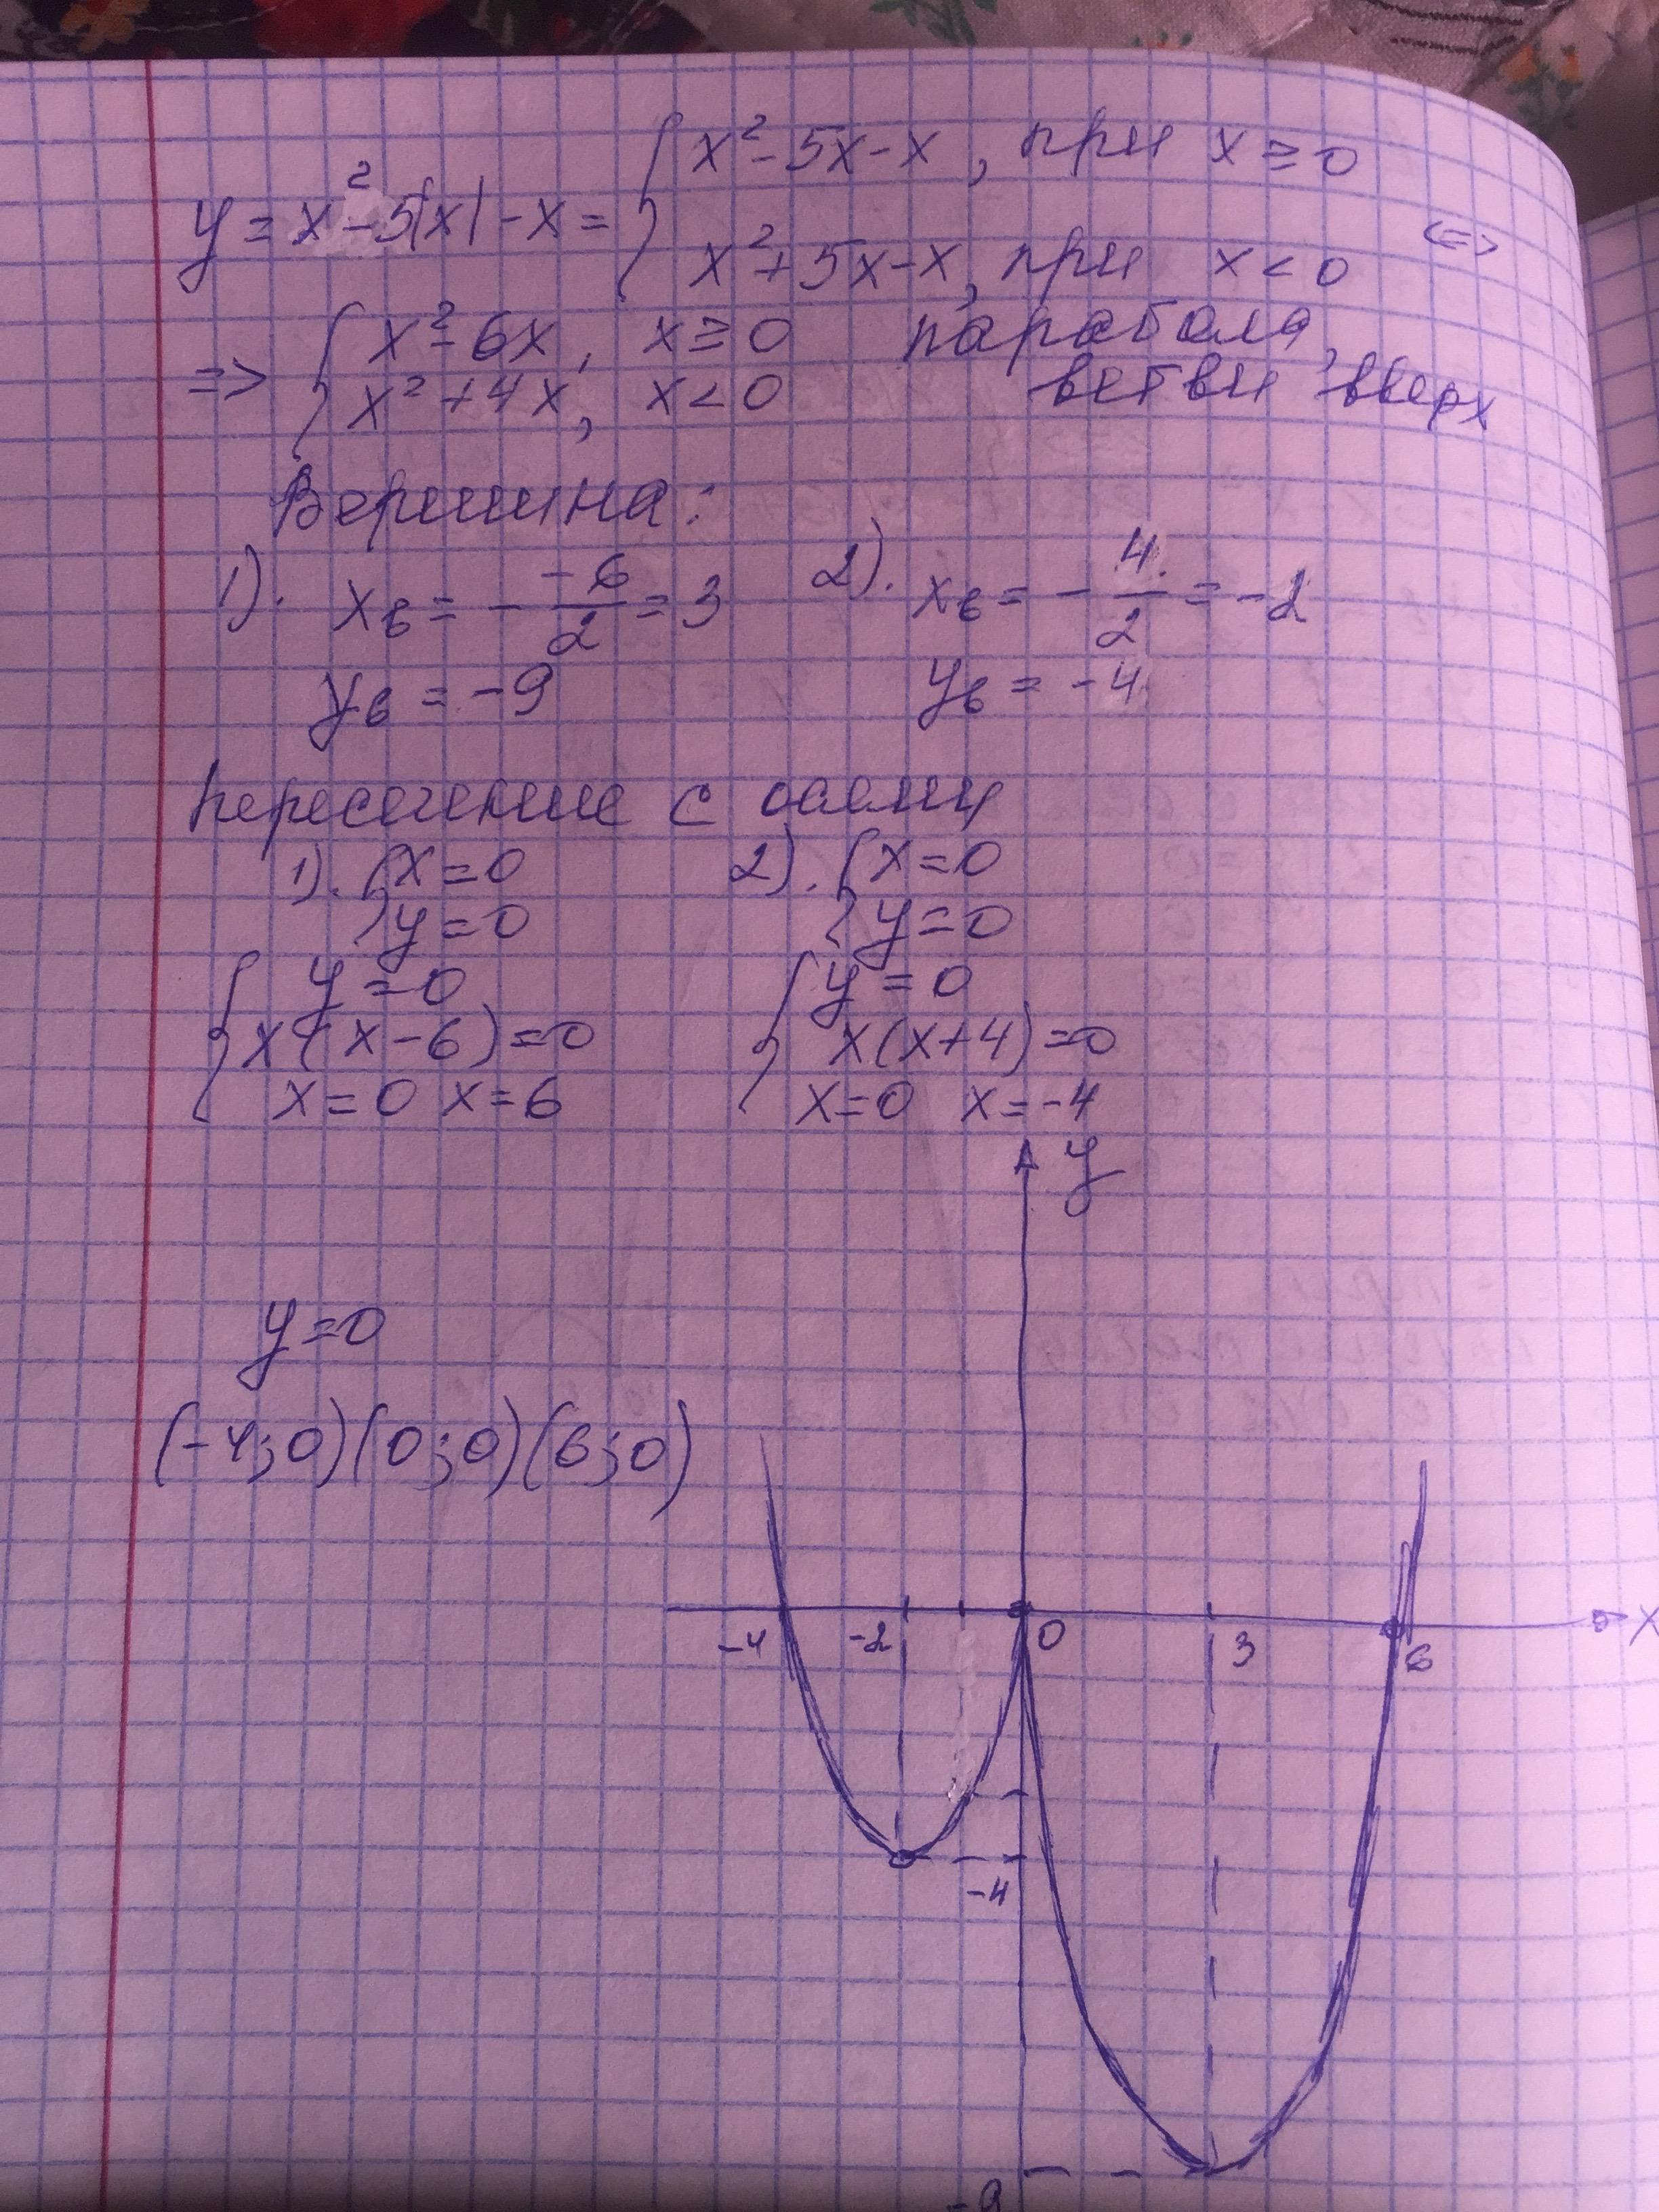 y = x² - 5|x| - x = { x² - 5x - x, при x ≥ 0
x² + 5x - x, при x < 0 <=>
=> { x² - 6x, x ≥ 0 парабола,
x² + 4x, x < 0 ветви вверх
Вершина:
1). xв = - -6/2 = 3 2). xв = - 4/2 = -2
yв = -9 yв = -4
Пересечение с осями
1). { x = 0 2). { x = 0
y = 0 y = 0
{ y = 0 { y = 0
x(x - 6) = 0 x(x + 4) = 0
x = 0 x = 6 x = 0 x = -4
y
y = 0
(-4; 0) (0; 0) (6; 0)
-4 -2 0 3 6 x
-4
-9